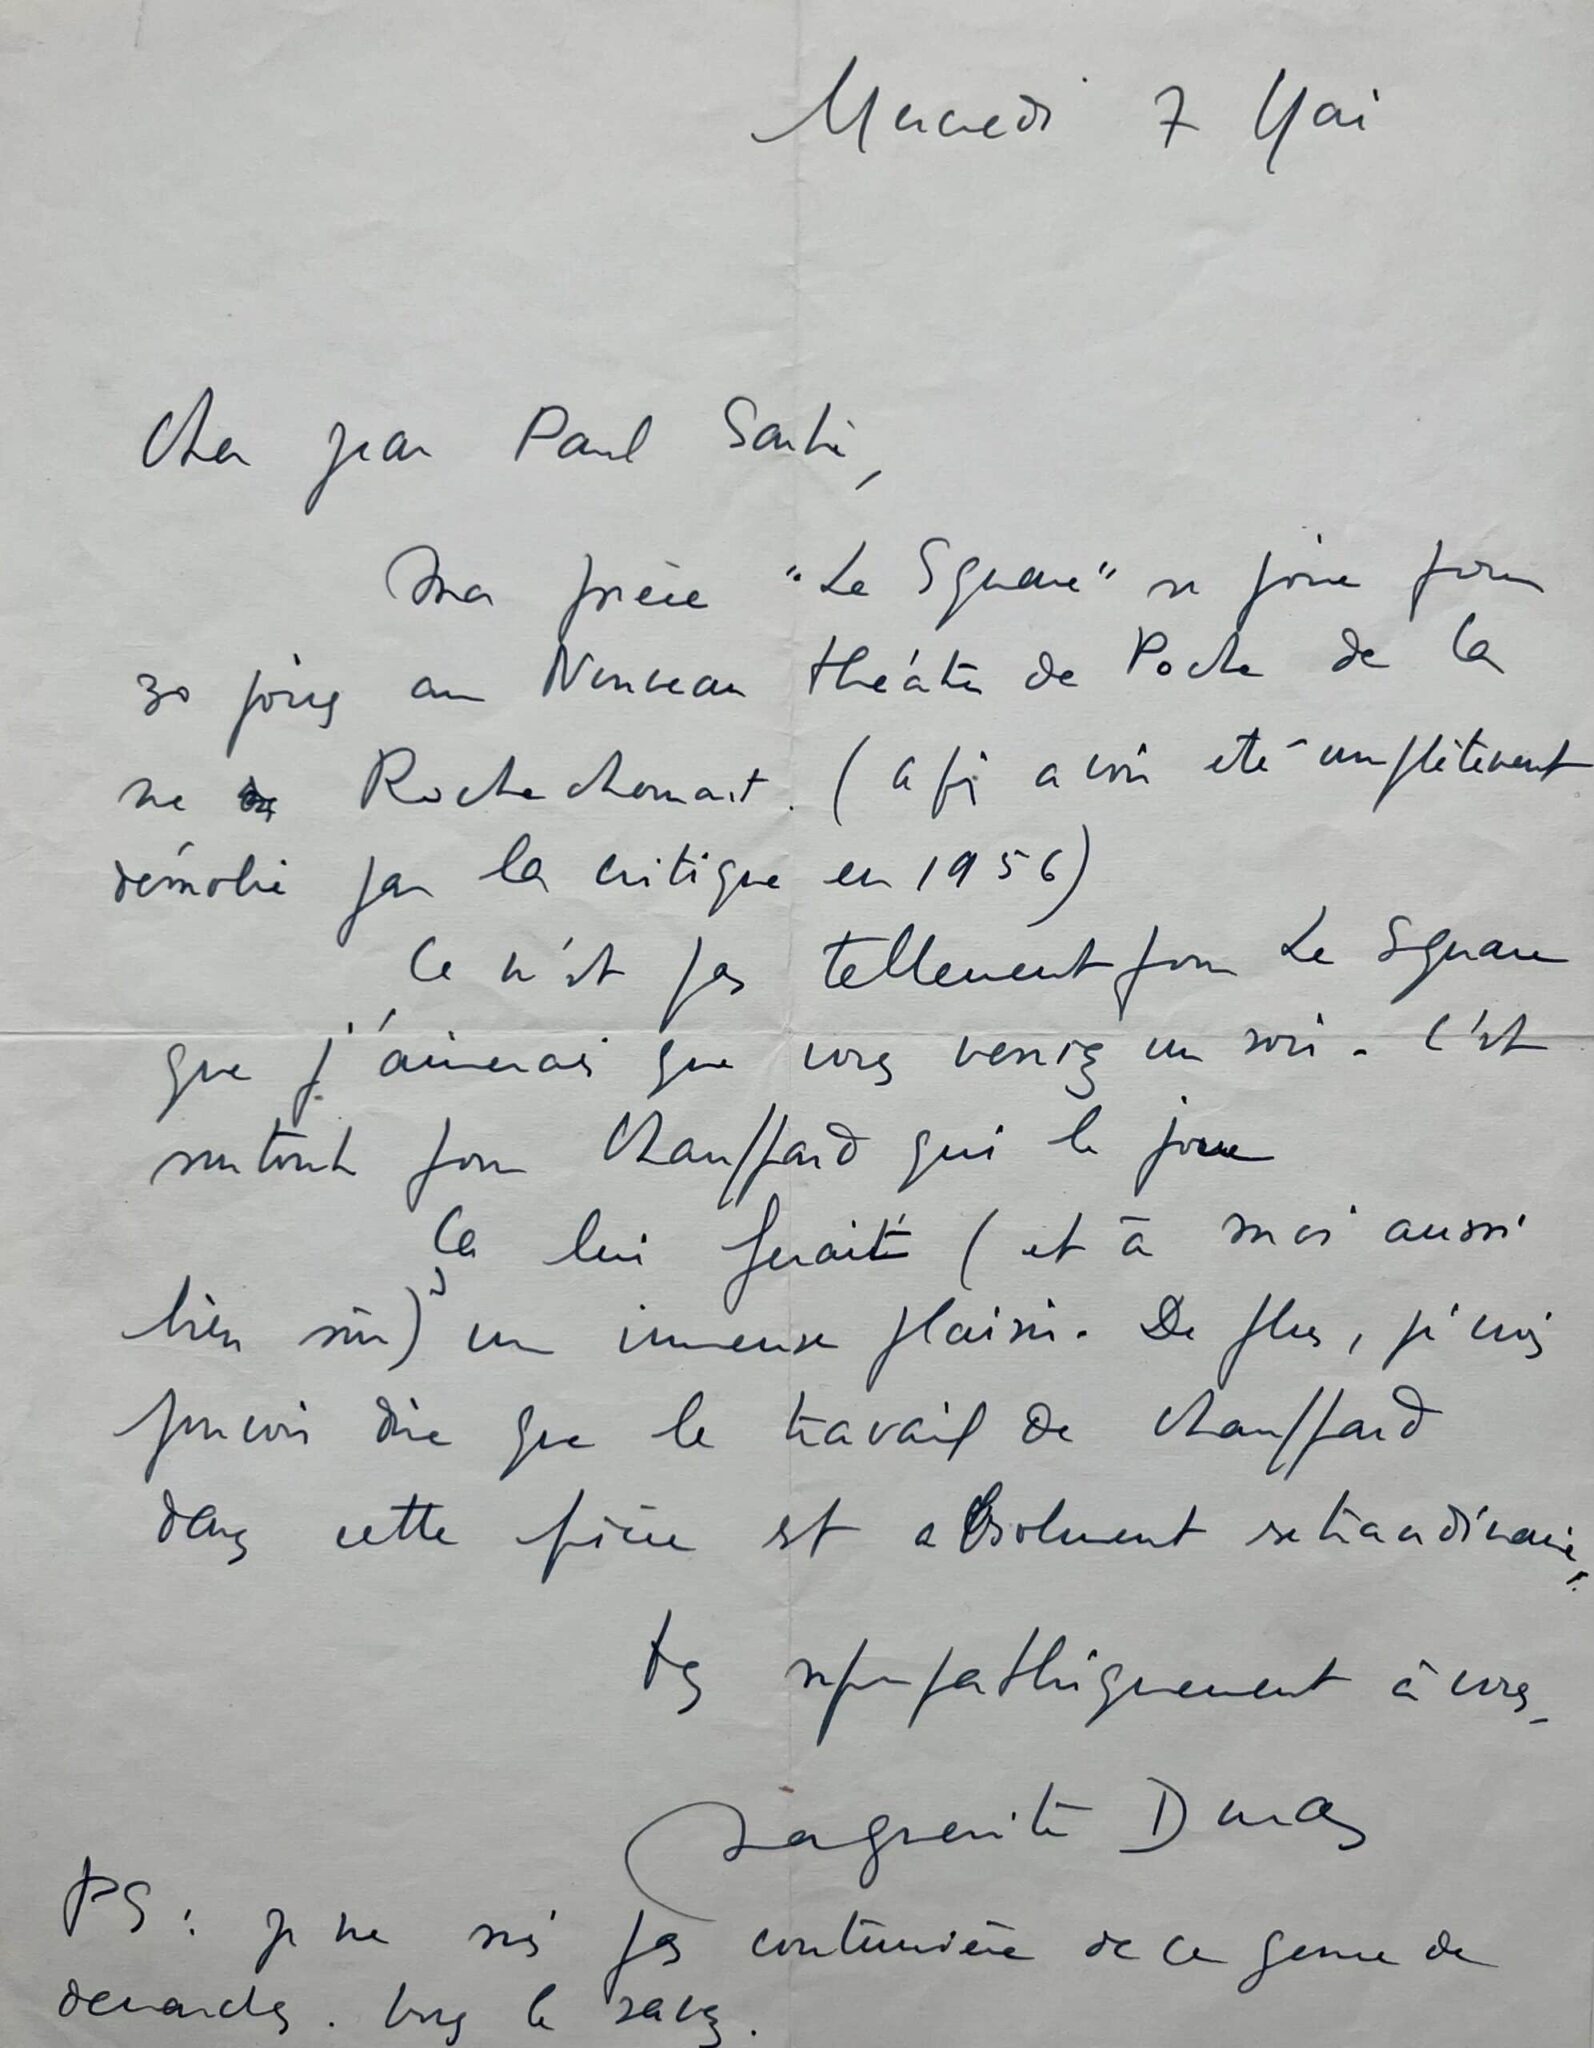 Mercredi 7 Mai
Cher jean Paul Sartre,
Ma pièce "Le Square" se joue pour
30 jours au Nouveau théâtre de Poche de la
rue Rochechouart. (après avoir été complètement
démolie par la critique en 1956)
Ce n'est pas tellement pour Le Square
que j'aimerais que vous veniez un soir. C'est
surtout pour Chauffard qui le joue
Ça lui ferait (et à moi aussi
bien sûr) un immense plaisir. De plus, je crois
pouvoir dire que le travail de Chauffard
dans cette pièce est absolument extraordinaire.
Très sympathiquement à vous,
Marguerite Duras
PS : je ne suis pas coutumière de ce genre de
demandes. Vous le savez.